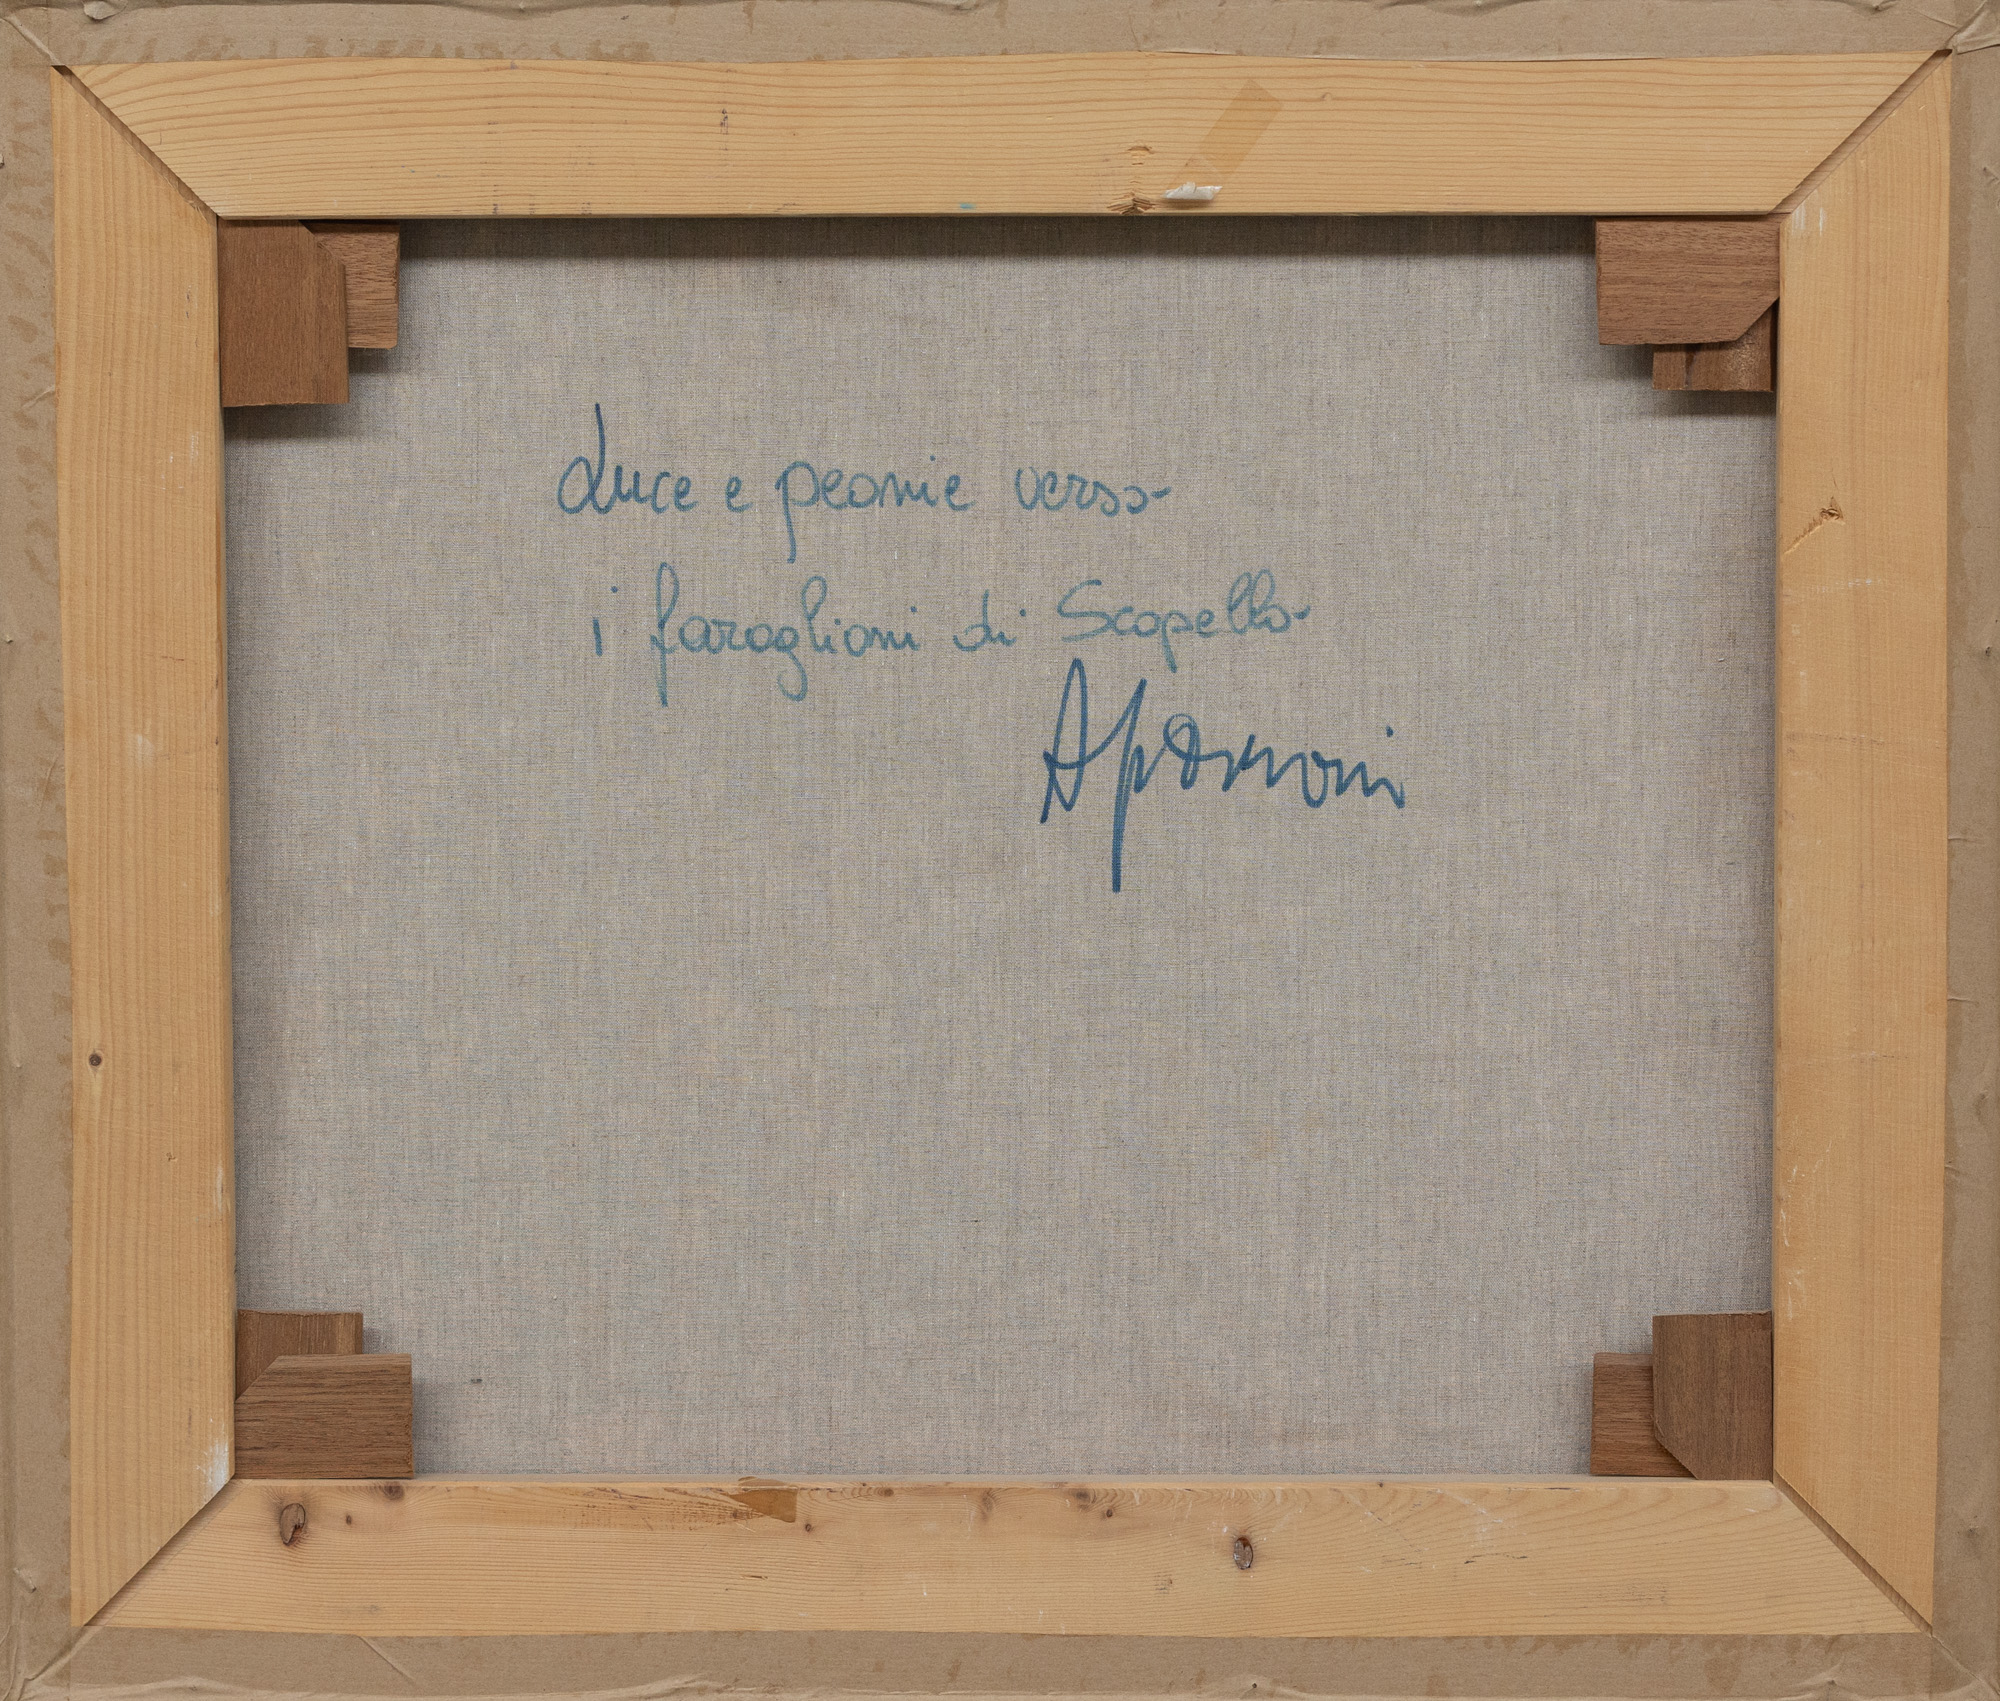 Luce e peonie verso
i faraglioni di Scopello